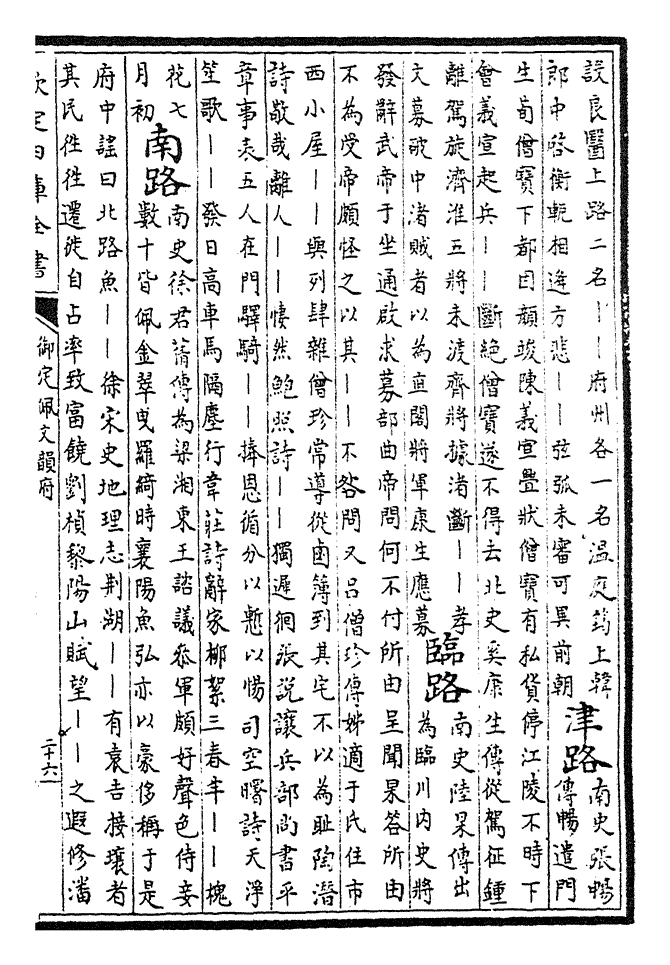 設良醫上路二名｜｜府州各一名溫庭筠上韓
郎中啓衡軛相逢方悲｜｜弦弧未審可異前朝
津路
南史張暢
傳暢遣門
生荀僧寶下都因顔竣陳義宣釁狀僧寶有私貨停江陵不時下
會義宣起兵｜｜斷絶僧寶遂不得去北史奚康生傳從駕征鍾
離駕旋濟淮五將未渡齊將據渚斷｜｜孝
文募破中渚賊者以為直閣將軍康生應募
臨路
南史陸杲傳出
為臨川内史將
發辭武帝于坐通啟求募部曲帝問何不付所由呈聞杲答所由
不為受帝頗怪之以其｜｜不咎問又吕僧珍傳姊適于氏住市
西小屋｜｜與列肆雜僧珍常導從鹵簿到其宅不以為耻陶潛
詩敬哉離人｜｜悽然鮑照詩｜｜獨遲徊張説讓兵部尚書平
章事表五人在門驛騎｜｜捧恩循分以慙以惕司空曙詩天淨
笙歌｜｜發日高車馬隔塵行韋莊詩辭家栁絮三春半｜｜槐
花七
月初
南路
南史徐君蒨傳為梁湘東王諮議叅軍頗好聲色侍妾
數十皆佩金翠曳羅綺時襄陽魚弘亦以豪侈稱于是
府中謡曰北路魚｜｜徐宋史地理志荆湖｜｜有袁吉接壤者
其民徃徃遷徙自占率致富饒劉楨黎陽山賦望｜｜之遐修潘
欽定四庫全書
御定佩文韻府
二十六